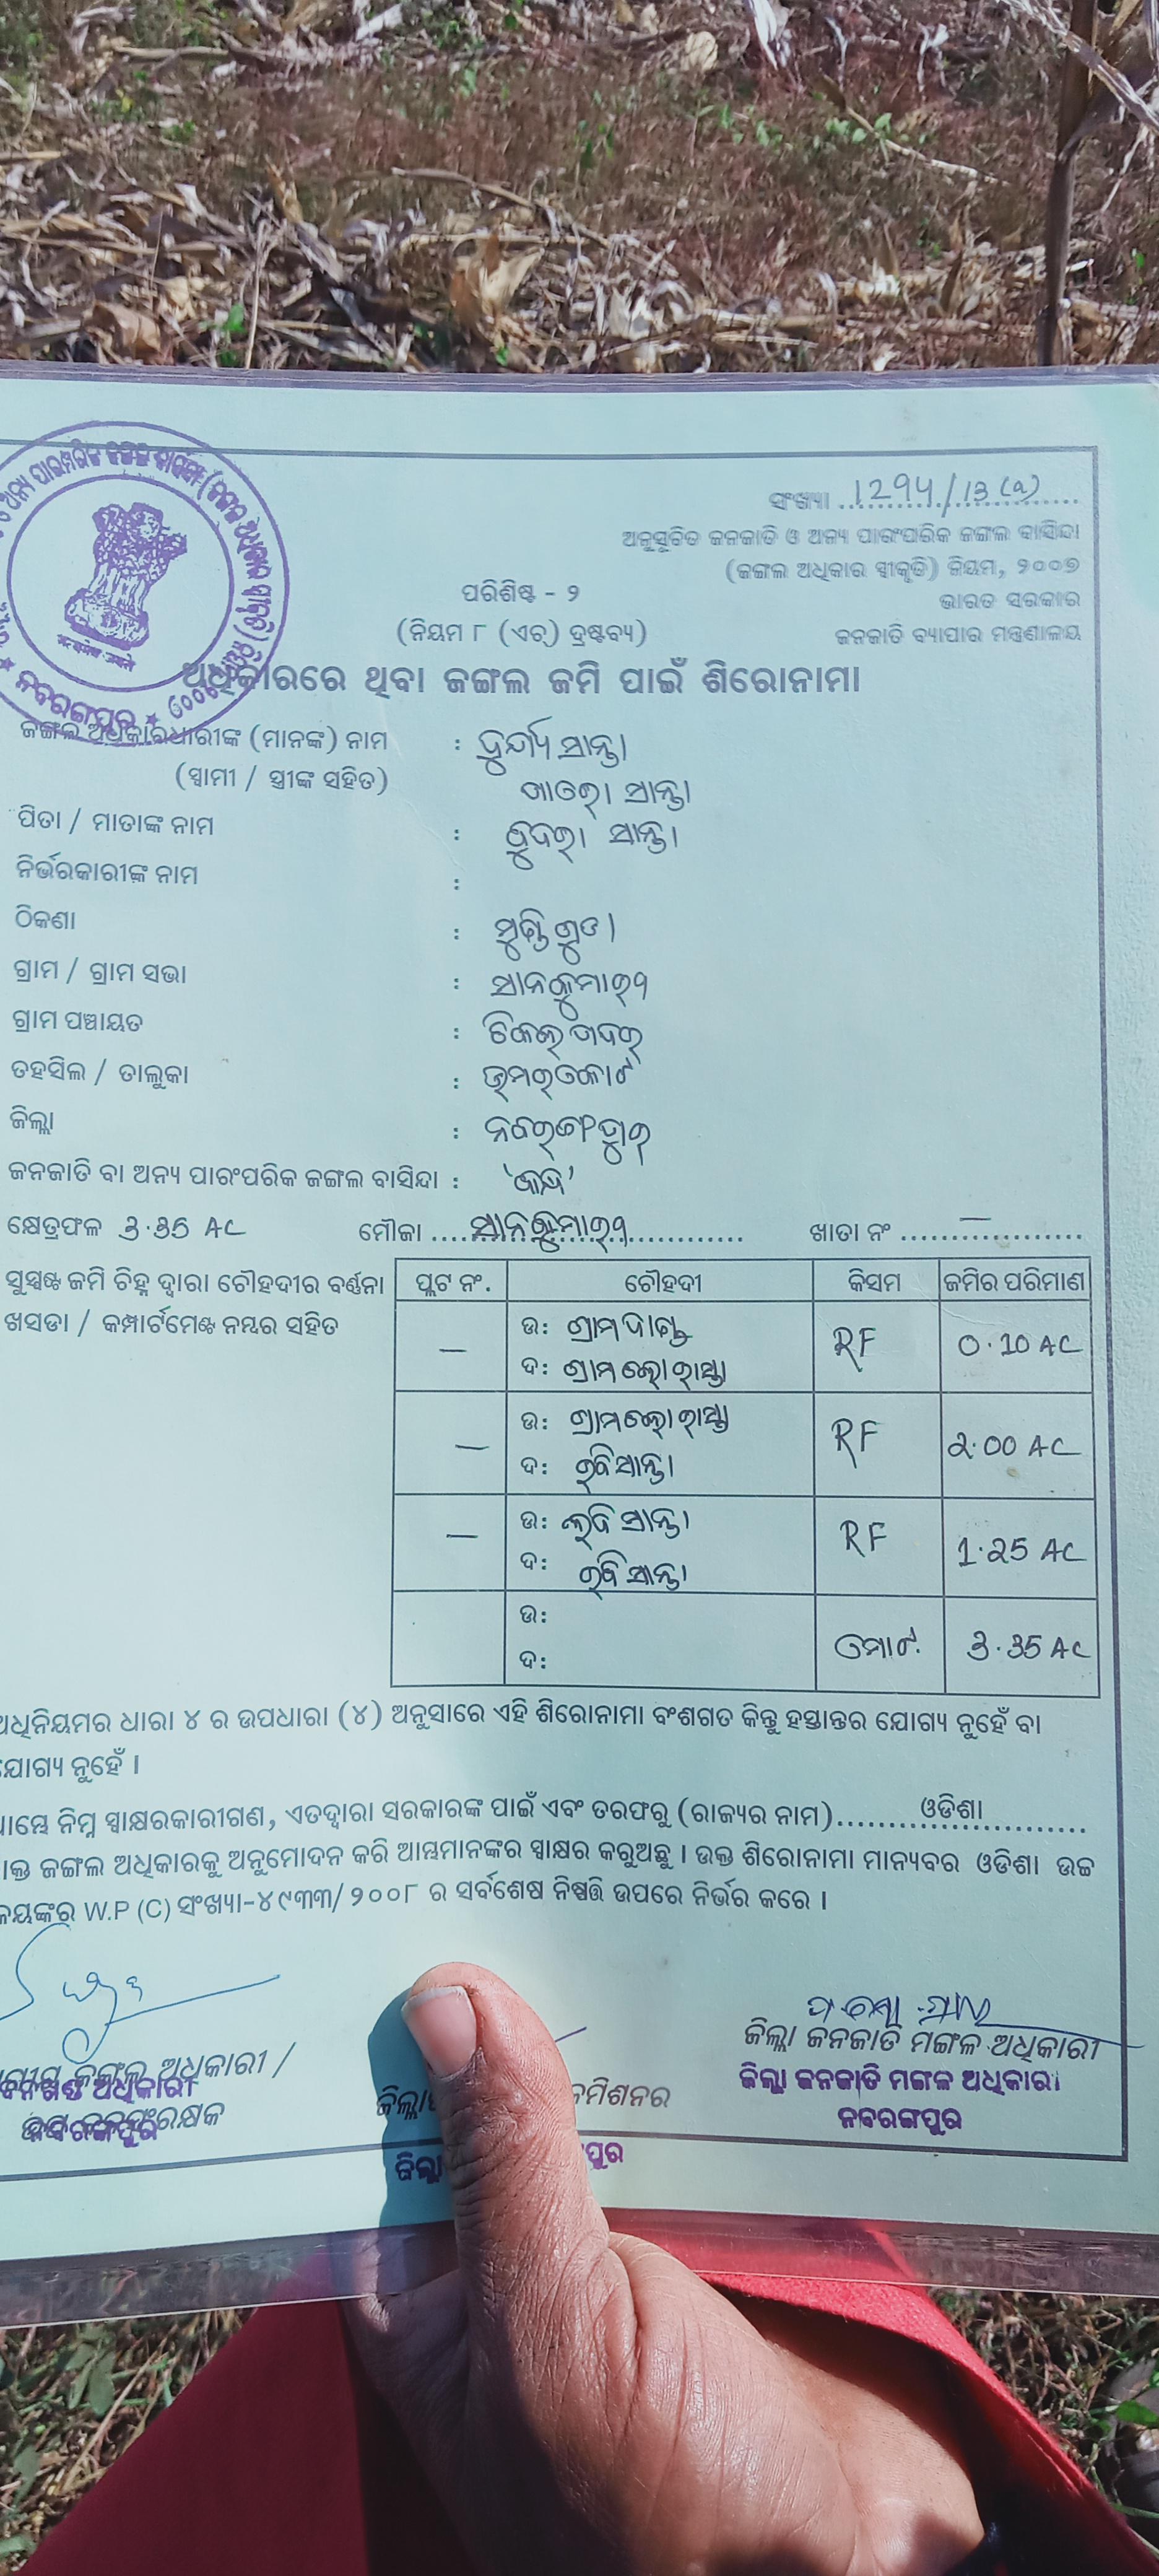 ସଂଖ୍ୟା 1294/13 (a)
ଅନୁସୂଚିତ ଜନଜାତି ଓ ଅନ୍ୟ ପାରଂପରିକ ଜଙ୍ଗଲ ବାସିନ୍ଦା
(ଜଙ୍ଗଲ ଅଧିକାର ସ୍ୱୀକୃତି) ନିୟମ, ୨୦୦୭
ଭାରତ ସରକାର
ଜନଜାତି ବ୍ୟାପାର ମନ୍ତ୍ରଣାଳୟ
ପରିଶିଷ୍ଟ - ୨
(ନିୟମ ୮ (ଏଚ୍) ଦ୍ରଷ୍ଟବ୍ୟ)
ନବରଙ୍ଗପୁର
ଅଧିକାରରେ ଥିବା ଜଙ୍ଗଲ ଜମି ପାଇଁ ଶିରୋନାମା
ଜଙ୍ଗଲ ଅଧିକାରଧାରୀଙ୍କ (ମାନଙ୍କ) ନାମ : ସାନ୍ତା
(ସ୍ୱାମୀ / ସ୍ତ୍ରୀଙ୍କ ସହିତ) ସାନ୍ତା
ପିତା / ମାତାଙ୍କ ନାମ : ସାନ୍ତା
ନିର୍ଭରକାରୀଙ୍କ ନାମ :
ଠିକଣା : ମୁଣ୍ଡିଗୁଡା
ଗ୍ରାମ / ଗ୍ରାମ ସଭା : ସାନକୁମାରୀ
ଗ୍ରାମ ପଞ୍ଚାୟତ : ଚିକଲପଦର
ତହସିଲ / ତାଲୁକା : ଉମରକୋଟ
ଜିଲ୍ଲା : ନବରଙ୍ଗପୁର
ଜନଜାତି ବା ଅନ୍ୟ ପାରଂପରିକ ଜଙ୍ଗଲ ବାସିନ୍ଦା : 'କନ୍ଧ'
କ୍ଷେତ୍ରଫଳ 3.35 AC ମୌଜା ସାନକୁମାରୀ ଖାତା ନଂ —
ସୁସ୍ପଷ୍ଟ ଜମି ଚିହ୍ନ ଦ୍ୱାରା ଚୌହଦୀର ବର୍ଣ୍ଣନା
ଖସଡା / କମ୍ପାର୍ଟମେଣ୍ଟ ନମ୍ବର ସହିତ
ପ୍ଲଟ ନଂ. ଚୌହଦୀ କିସମ ଜମିର ପରିମାଣ
— ଉ: ଗ୍ରାମ ଦାଣ୍ଡ RF 0.10 AC
ଦ: ଗ୍ରାମ ରାସ୍ତା
— ଉ: ଗ୍ରାମ ରାସ୍ତା RF 2.00 AC
ଦ: ରବି ସାନ୍ତା
— ଉ: ସାନ୍ତା RF 1.25 AC
ଦ: ରବି ସାନ୍ତା
ଉ: ମୋଟ. 3.35 AC
ଦ:
ଅଧିନିୟମର ଧାରା ୪ ର ଉପଧାରା (୪) ଅନୁସାରେ ଏହି ଶିରୋନାମା ବଂଶଗତ କିନ୍ତୁ ହସ୍ତାନ୍ତର ଯୋଗ୍ୟ ନୁହେଁ ବା
ଯୋଗ୍ୟ ନୁହେଁ ।
ନିମ୍ନ ସ୍ୱାକ୍ଷରକାରୀଗଣ, ଏତଦ୍ୱାରା ସରକାରଙ୍କ ପାଇଁ ଏବଂ ତରଫରୁ (ରାଜ୍ୟର ନାମ) ଓଡିଶା
ଜଙ୍ଗଲ ଅଧିକାରକୁ ଅନୁମୋଦନ କରି ଆମ୍ଭମାନଙ୍କର ସ୍ୱାକ୍ଷର କରୁଅଛୁ । ଉକ୍ତ ଶିରୋନାମା ମାନ୍ୟବର ଓଡିଶା ଉଚ୍ଚ
W.P (C) ସଂଖ୍ୟା-୪୯୩୩/୨୦୦୮ ର ସର୍ବଶେଷ ନିଷ୍ପତ୍ତି ଉପରେ ନିର୍ଭର କରେ ।
ଜଙ୍ଗଲ ଅଧିକାରୀ /
ବନଖଣ୍ଡ ଅଧିକାରୀ
ନବରଙ୍ଗପୁର
ଜିଲ୍ଲା
ଜିଲ୍ଲା ଜନଜାତି ମଙ୍ଗଳ ଅଧିକାରୀ
ଜିଲ୍ଲା ଜନଜାତି ମଙ୍ଗଳ ଅଧିକାରୀ
ନବରଙ୍ଗପୁର